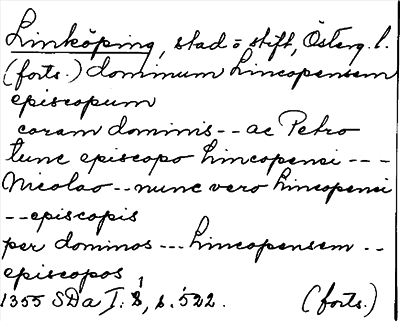 Linköping, stad o stift, Österg. l.
(forts.) dominum Lincopensem
episcopum
coram dominis -- ac Petro
tunc episcopo Lincopensi ---
Nicolao -- nunc vero Lincopensi
-- episcopis
per dominos --- Lincopensem --
episcopos
1355 SDa I: 8, s. 522. (forts.)